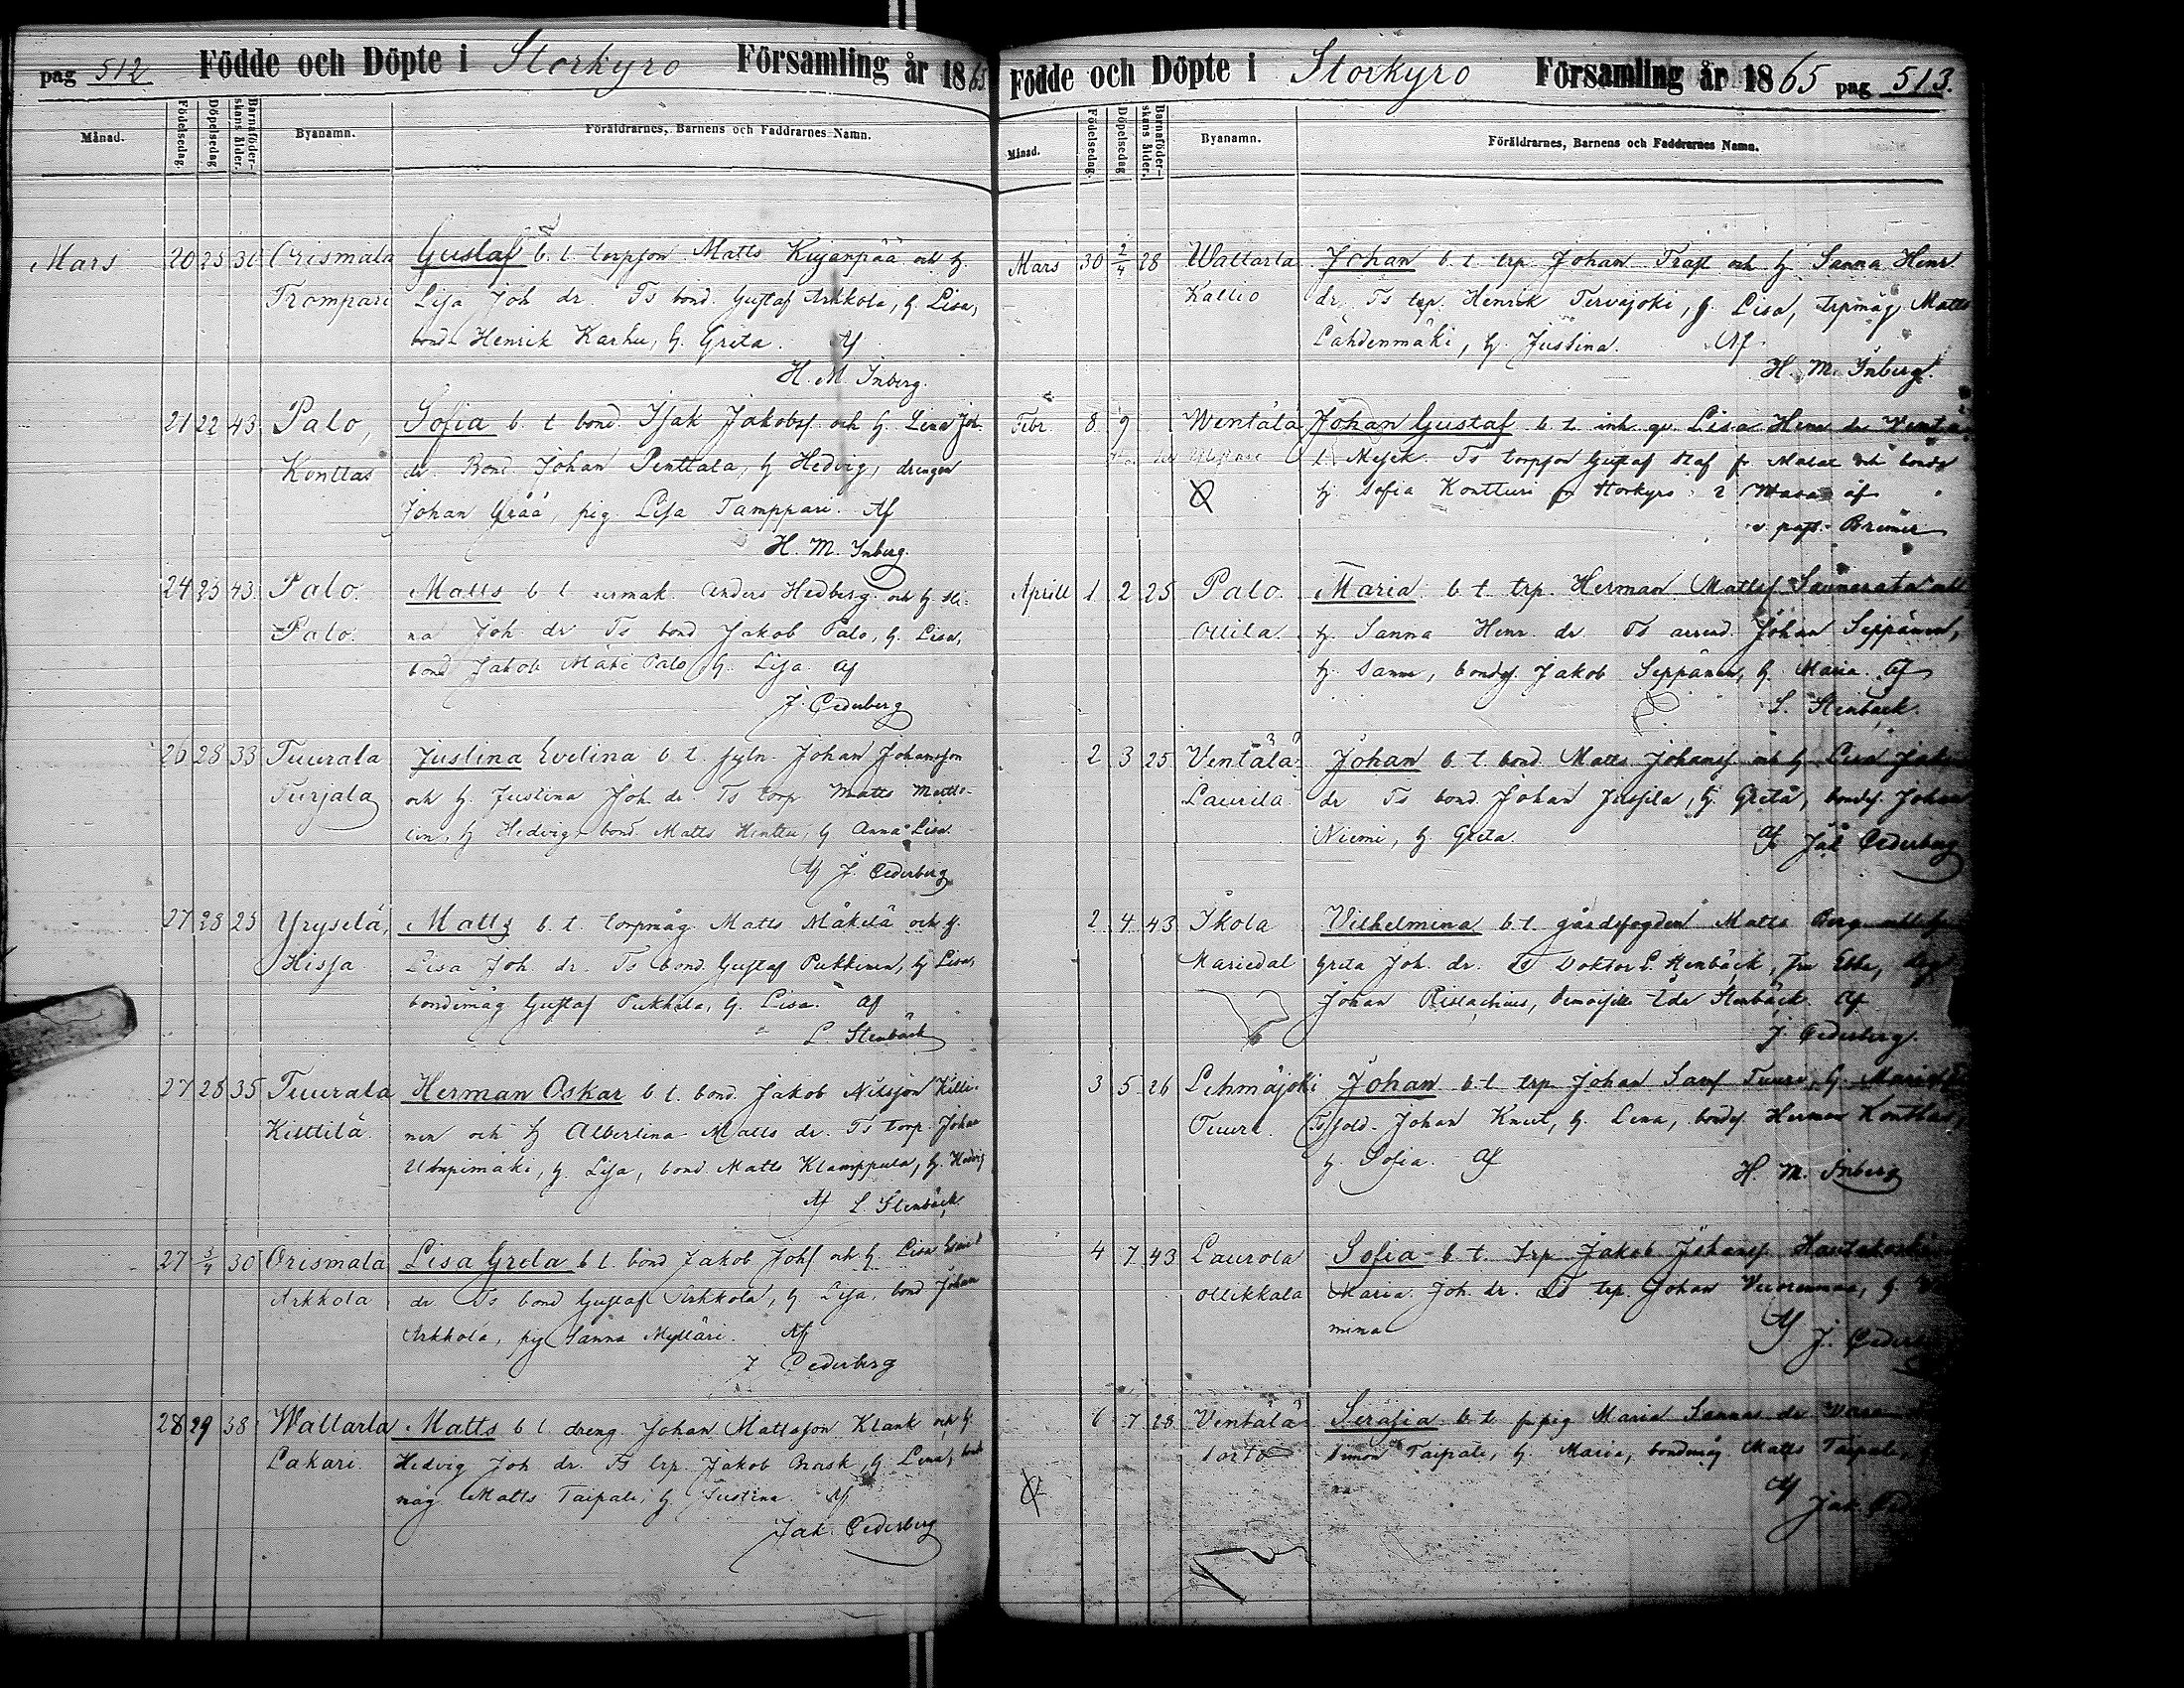 pag 512 Födde och Döpte i Storkyro Församling år 1865
Månad. Födelsedag. Döpelsedag Barnaföderskans ålder. Byanamn. Föräldrarnes, Barnens och Faddrarnes Namn.
Mars 20 25 30 Orismala Gustaf b. t. torpson Matts Kujanpää och h.
Trompari Lisa Joh dr. Ts bond. Gustaf Arkkola, h. Lisa,
bond. Henrik Karhu, h. Greta. Af
H. M. Inberg.
21 22 43 Palo, Sofia b. t. bond. Isak Jakobss. och h. Lena Joh.
Konttas dr. Bond. Johan Penttala, h Hedvig, drengen
Johan Gråå, pig. Lisa Tamppari. Af
H. M. Inberg.
24 25 43 Palo. Matts b t urmak. Anders Hedberg och h
Palo. na Joh. dr Ts bond Jakob Palo, h. Lisa,
bond Jakob Mäki Palo, h. Lisa. Af
J. Cederberg
26 28 33 Tuurala Justina Evelina b. t. Johan Johansson
Turjala och h. Justina Joh. dr. Ts torp Matts
h Hedvig bond. Matts Hinttu, h Anna Lisa.
Af J. Cederberg
27 28 25 Yryselä, Matts b. t. torpmåg Matts Mäkelä och h.
Hissa Lisa Joh. dr. Ts bond. Gustaf Pukkinen, h Lisa,
bondemåg Gustaf Pukkila, h. Lisa. Af
L. Stenbäck
27 28 35 Tuurala Herman Oskar b. t. bond. Jakob Nilsson Killi-
Kilttilä nen och h Albertina Matts dr. Ts torp. Johan
h. Lisa, bond. Matts Klamppula, h. Hedvig
Af L Stenbäck
27 3/4 30 Orismala Lisa Greta b t. bond Jakob Johs och h. Lisa
Arkkola dr Ts bond Gustaf Arkkola, h Lisa, bond Johan
Arkkola, pig Sanna Mylläri. Af
J Cederberg
28 29 38 Wallarla Matts b t. dreng. Johan Mattsson Klank och h.
Lakari. Hedvig Joh dr. Ts trp. Jakob h. Lena, bonde
måg Matts Taipale, h Justina. Af
Jak. Cederberg
Födde och Döpte i Storkyro Församling år 1865 pag 513.
Månad. Födelsedag. Döpelsedag Barnaföderskans ålder. Byanamn. Föräldrarnes, Barnens och Faddrarnes Namn.
Mars 30 2/4 28 Wallarla Johan b t. trp. Johan Frast och h Sanna Henr.
Kallio dr. Ts trp. Henrik Tervajoki, h. Lisa, trpmåg Matts
Lähdenmäki, h. Justina. Af
H. M. Inberg.
Febr. 8 9 Wentälä Johan Gustaf b. t. inh. qv. Lisa Henr dr
Ts torpson Gustaf fr. och bonds
h. Sofia Kontturi fr Storkyro i Wasa af
v. past. Bremer
Aprill 1 2 25 Palo. Maria b. t. trp. Herman Mattss.
Ollila h. Sanna Henr. dr. Ts arrend. Johan Seppänen,
h. Sanna, bondes. Jakob Seppänen, h. Maria. Af
L. Stenbäck.
2 3 25 Ventälä Johan b. t. bond. Matts Johanss. och h Lisa
Laurila dr Ts bond. Johan Jussila, h. Greta, bondes. Johan
Niemi, h. Greta. Af Jak Cederberg
2 4 43 Ikola Vilhelmina b t. gårdsfogden Matts Berg
Mariedal Greta Joh. dr. Ts Doktor L. Stenbäck, fru Ebba,
Johan demoiselle Ida Stenbäck. Af
J. Cederberg.
3 5 26 Lehmäjoki Johan b. t. trp. Johan Tuure, h. Maria
Tuure. Ts sold. Johan Knut, h. Lena, bondes. Herman Konttas,
h. Sofia. Af
H. M. Inberg
4 7 43 Laurola Sofia b. t. trp. Jakob Johanss.
Ollikkala Maria Joh. dr. Ts trp. Johan Vuorenmaa, h.
mina Af
J. Ceder
6 7 28 Ventälä Serafia b. t. pig Maria Sannas dr
torto Simon Taipale, h. Maria, bondemåg Matts Taipale,
na Af
Jak. Ced